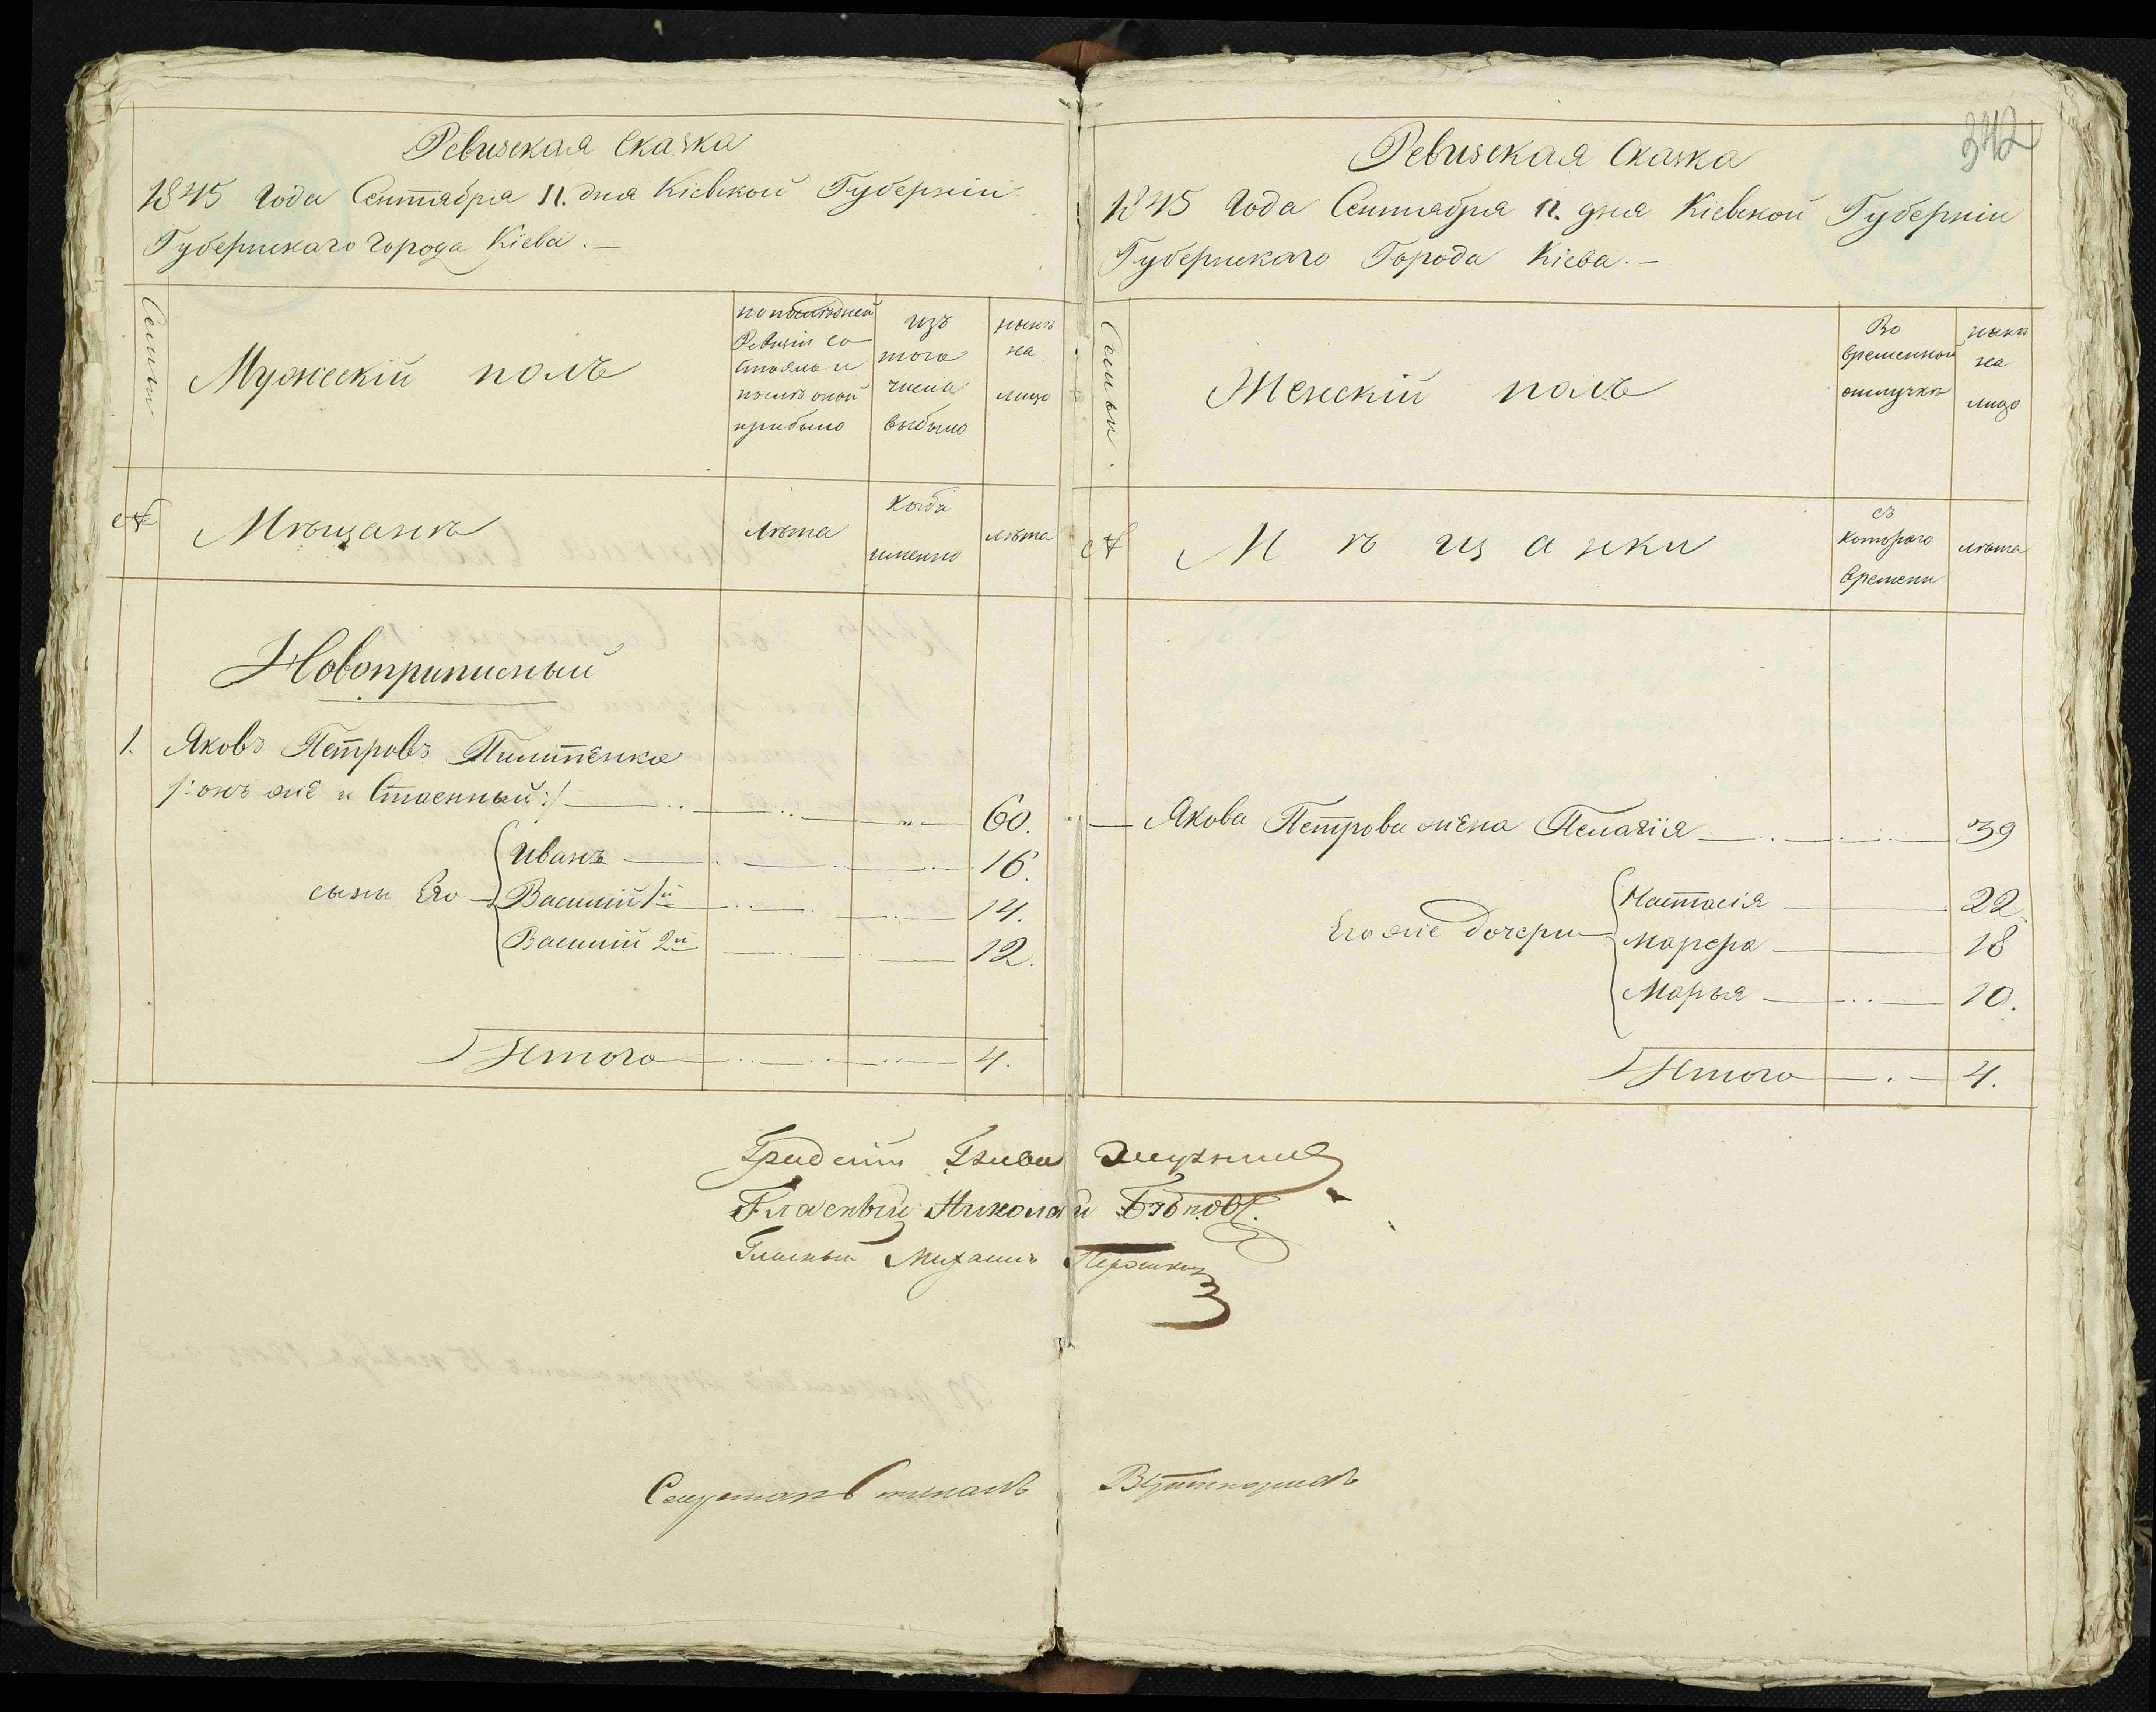 Ревизская Сказка
1845 Года Сентября 11. дня Кіевской Губерніи
Губернскаго Города Кіева. —
Семьи
Мужескій полъ
по последней
Ревизіи со
стояло и
послѣ оной
прибыло
изъ
того
числа
выбыло
нынѣ
на
лицо
№
Мѣщанъ
Лѣта
Когда
именно
Лѣта
Новоприписный
1. Яковъ Петровъ
/: онъ же и Стаенный :/ 60.
сыны Его
Иванъ 16.
Василій 1й 14.
Василій 2й 12.
Итого 4.
342
Ревизская Сказка
1845 Года Сентября 11. дня Кіевской Губерніи
Губернскаго Города Кіева. —
Семьи.
Женскій полъ
Во
временной
отлучкѣ
нынѣ
на
лицо
№
Мѣщанки
съ
Котораго
Времени
лѣта
Якова Петрова жена Пелагія 39
Его же дочери
Настасія 22.
Марфа 18
Марья 10.
Итого 4.
Гласный Николай
Гласный Михаилъ